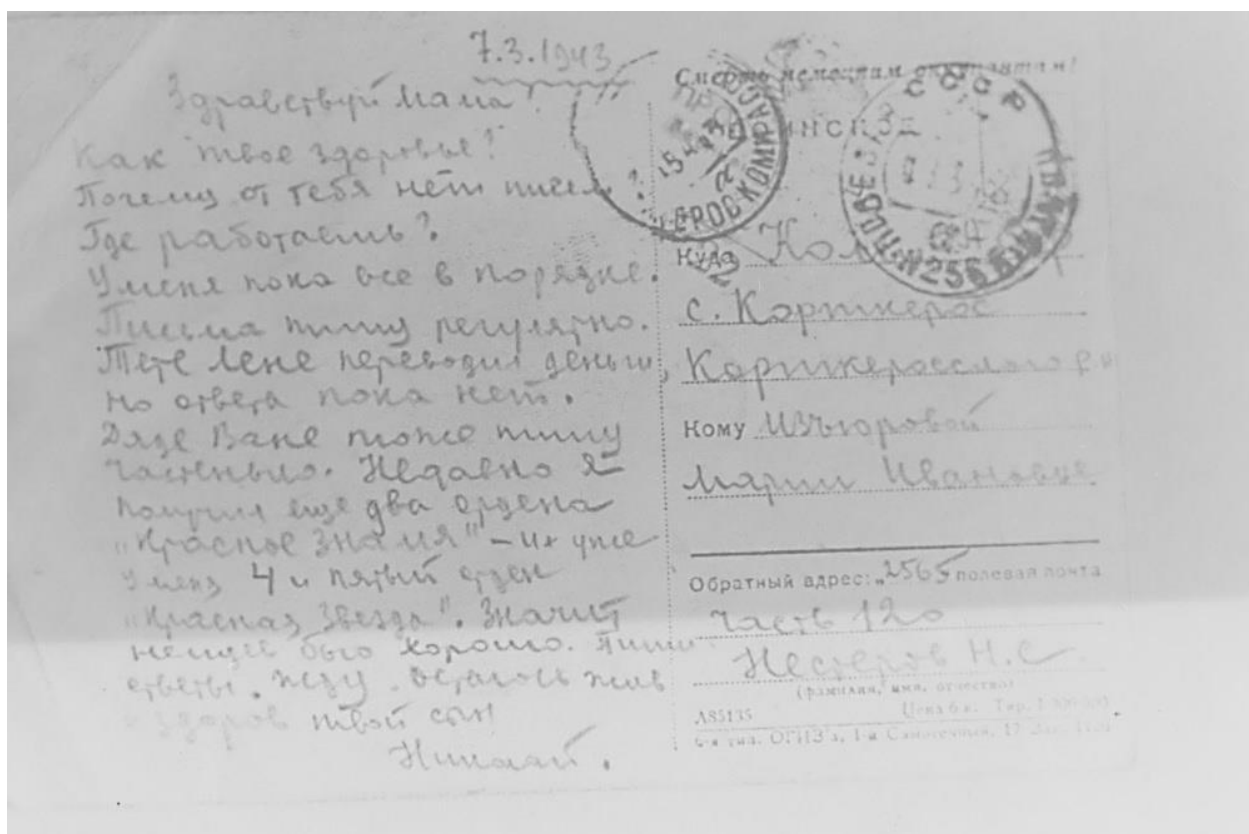 7.3.1943
Здравствуй Мама!
Как твое здоровье?
Почему от тебя нет писем?
Где работаешь?
У меня пока все в порядке.
Письма пишу регулярно.
Тете Лене переводил деньги,
но ответа пока нет.
Дяде Ване тоже пишу
частенько. Недавно я
получил еще два ордена
"Красное знамя" – их уже
у меня 4 и пятый орден
"Красная Звезда". Значит
немцев бью хорошо. Пиши
ответы. Жду. Остаюсь жив
здоров твой сын
Николай.
Смерть немецким оккупантам!
СССР
Куда
с. Корткерос
Корткеросского р-н
Кому Изъюровой
Марии Ивановне
Обратный адрес: 2565 полевая почта
часть 120
Нестеров Н.С.
(фамилия, имя, отчество)
А85135 Цена 6 к.